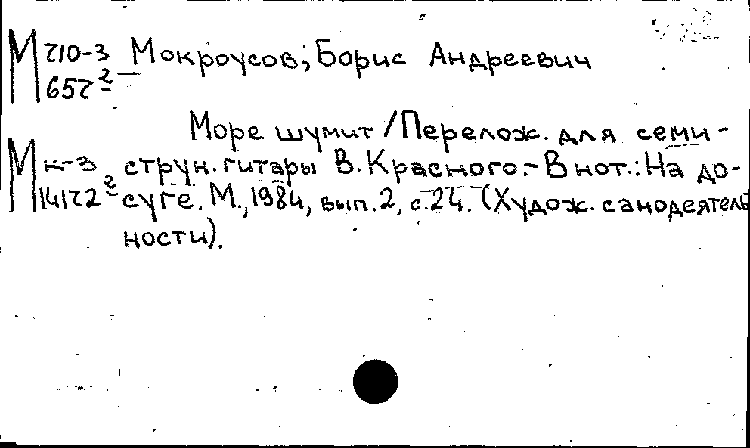 М 710-3 Мокроусов, Борис Андреевич
657²
Море шумит / Перелож. для семи-
М к-3 струн. гитары В. Красного.- В нот.: На до-
суге. М., 1984, вып. 2, с. 24. (Худож. самодеятель
ности).